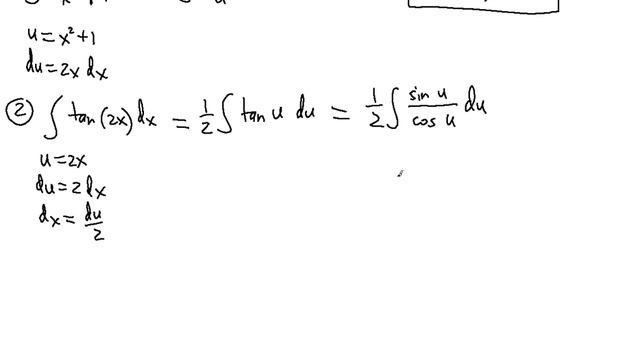 u = x² + 1
du = 2x dx
② ∫ tan(2x) dx = 1/2 ∫ tan u du = 1/2 ∫ sin u / cos u du
u = 2x
du = 2 dx
dx = du/2